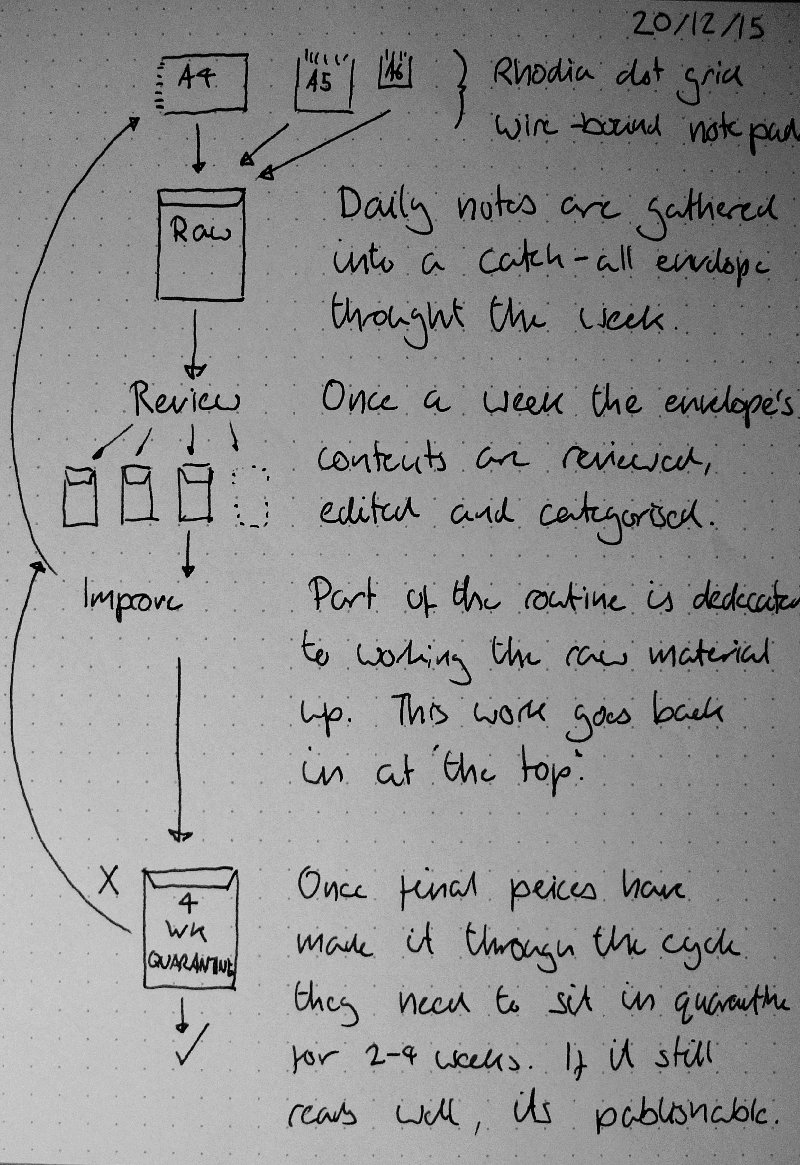 20/12/15
A4 A5 A6 } Rhodia dot grid
wire-bound notepad
Raw
Daily notes are gathered
into a catch-all envelope
throught the week.
Review
Once a week the envelope's
contents are reviewed,
edited and categorised.
Improve
Part of the routine is dedecated
to working the raw material
up. This work goes back
in at 'the top'.
X
4
WK
QUARANTINE
✓
Once final peices have
made it through the cycle
they need to sit in quarantine
for 2-4 weeks. If it still
reads well, its publishable.